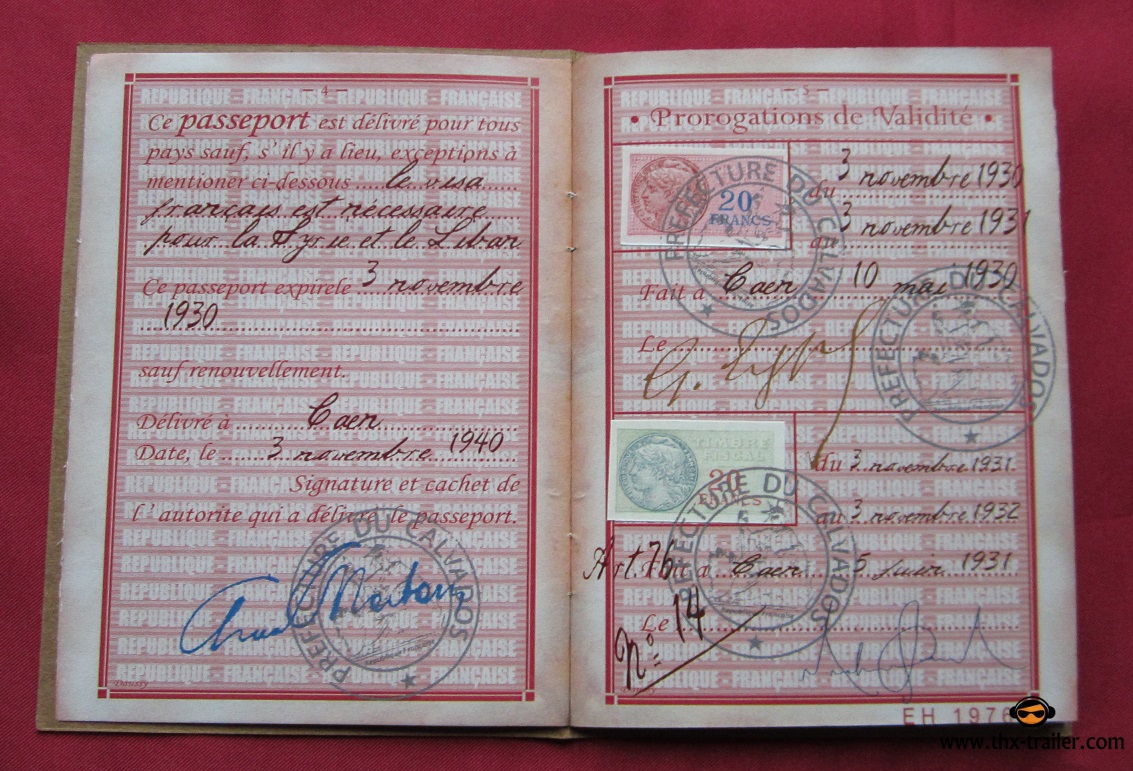 - 4 -
REPUBLIQUE - FRANÇAISE - REPUBLIQUE - FRANÇAISE
Ce passeport est délivré pour tous
pays sauf, s'il y a lieu, exceptions à
mentioner ci-dessous le visa
français est nécessaire
pour la Syrie et le Liban
Ce passeport expirele 3 novembre
1930
sauf renouvellement.
Délivré à Caen
Date, le 3 novembre 1940
Signature et cachet de
l'autorite qui a délivré le passeport.
PREFECTURE DU CALVADOS
- 5 -
REPUBLIQUE - FRANÇAISE - REPUBLIQUE - FRANÇAISE
• Prorogations de Validité •
20 FRANCS
PREFECTURE DU CALVADOS
du 3 novembre 1930
au 3 novembre 1931
Fait à Caen 10 mai 1930
Le
PREFECTURE DU CALVADOS
TIMBRE
FISCAL
du 3 novembre 1931
au 3 novembre 1932
PREFECTURE DU CALVADOS
Art. 76
à Caen 5 juin 1931
Le
N° 14
EH 1976
www.thx-trailer.com